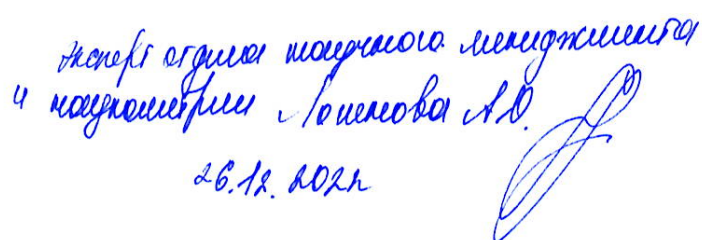 эксперт отдела научного менеджмента
и наукометрии А.О.
26.12.2022